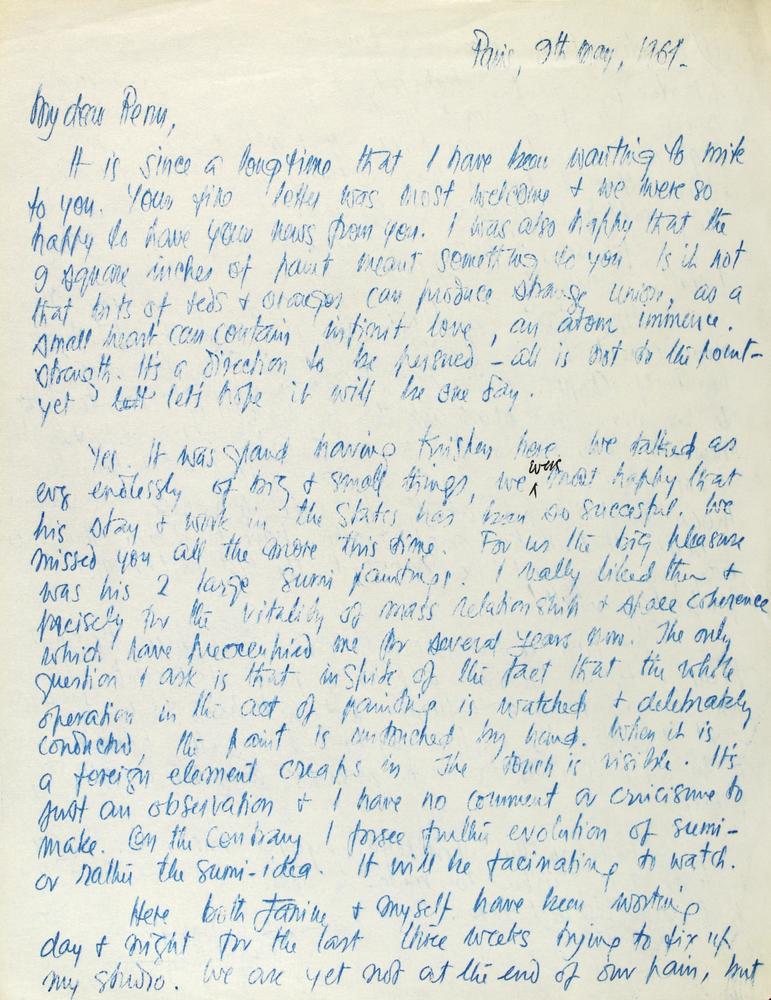 Paris, 9th May, 1961.
My dear Renu,
It is since a longtime that I have been wanting to write
to you. Your fine letter was most welcome & we were so
happy to have your news from you. I was also happy that the
9 square inches of paint meant something to you. Is it not
that bits of reds & oranges can produce strange union, as a
small heart can contain infinit love, an atom immence.
strength. It's a direction to be persued – all is not to the point –
yet let's hope it will be one day.
Yes. It was grand having Krishen here. We talked as
ever endlessly of big & small things, we were most happy that
his stay & work in the States has been so succesful. We
missed you all the more this time. For us the big pleasure
was his 2 large Sumi paintings. I really liked them &
precisely for the vitality of mass relationship & space coherence
which have preoccupied me for several years now. The only
question I ask is that inspite of the fact that the whole
operation in the act of painting is watched & deleberately
conducted, the paint is untouched by hand. When it is
a foreign element creaps in The touch is visible. It's
just an observation & I have no comment or criicisme to
make. On the Contrary I forsee further evolution of sumi –
or rather the Sumi-idea. It will be facinating to watch.
Here both Janine & myself have been working
day & night for the last three weeks trying to fix up
my studio. We are yet not at the end of our pain, but